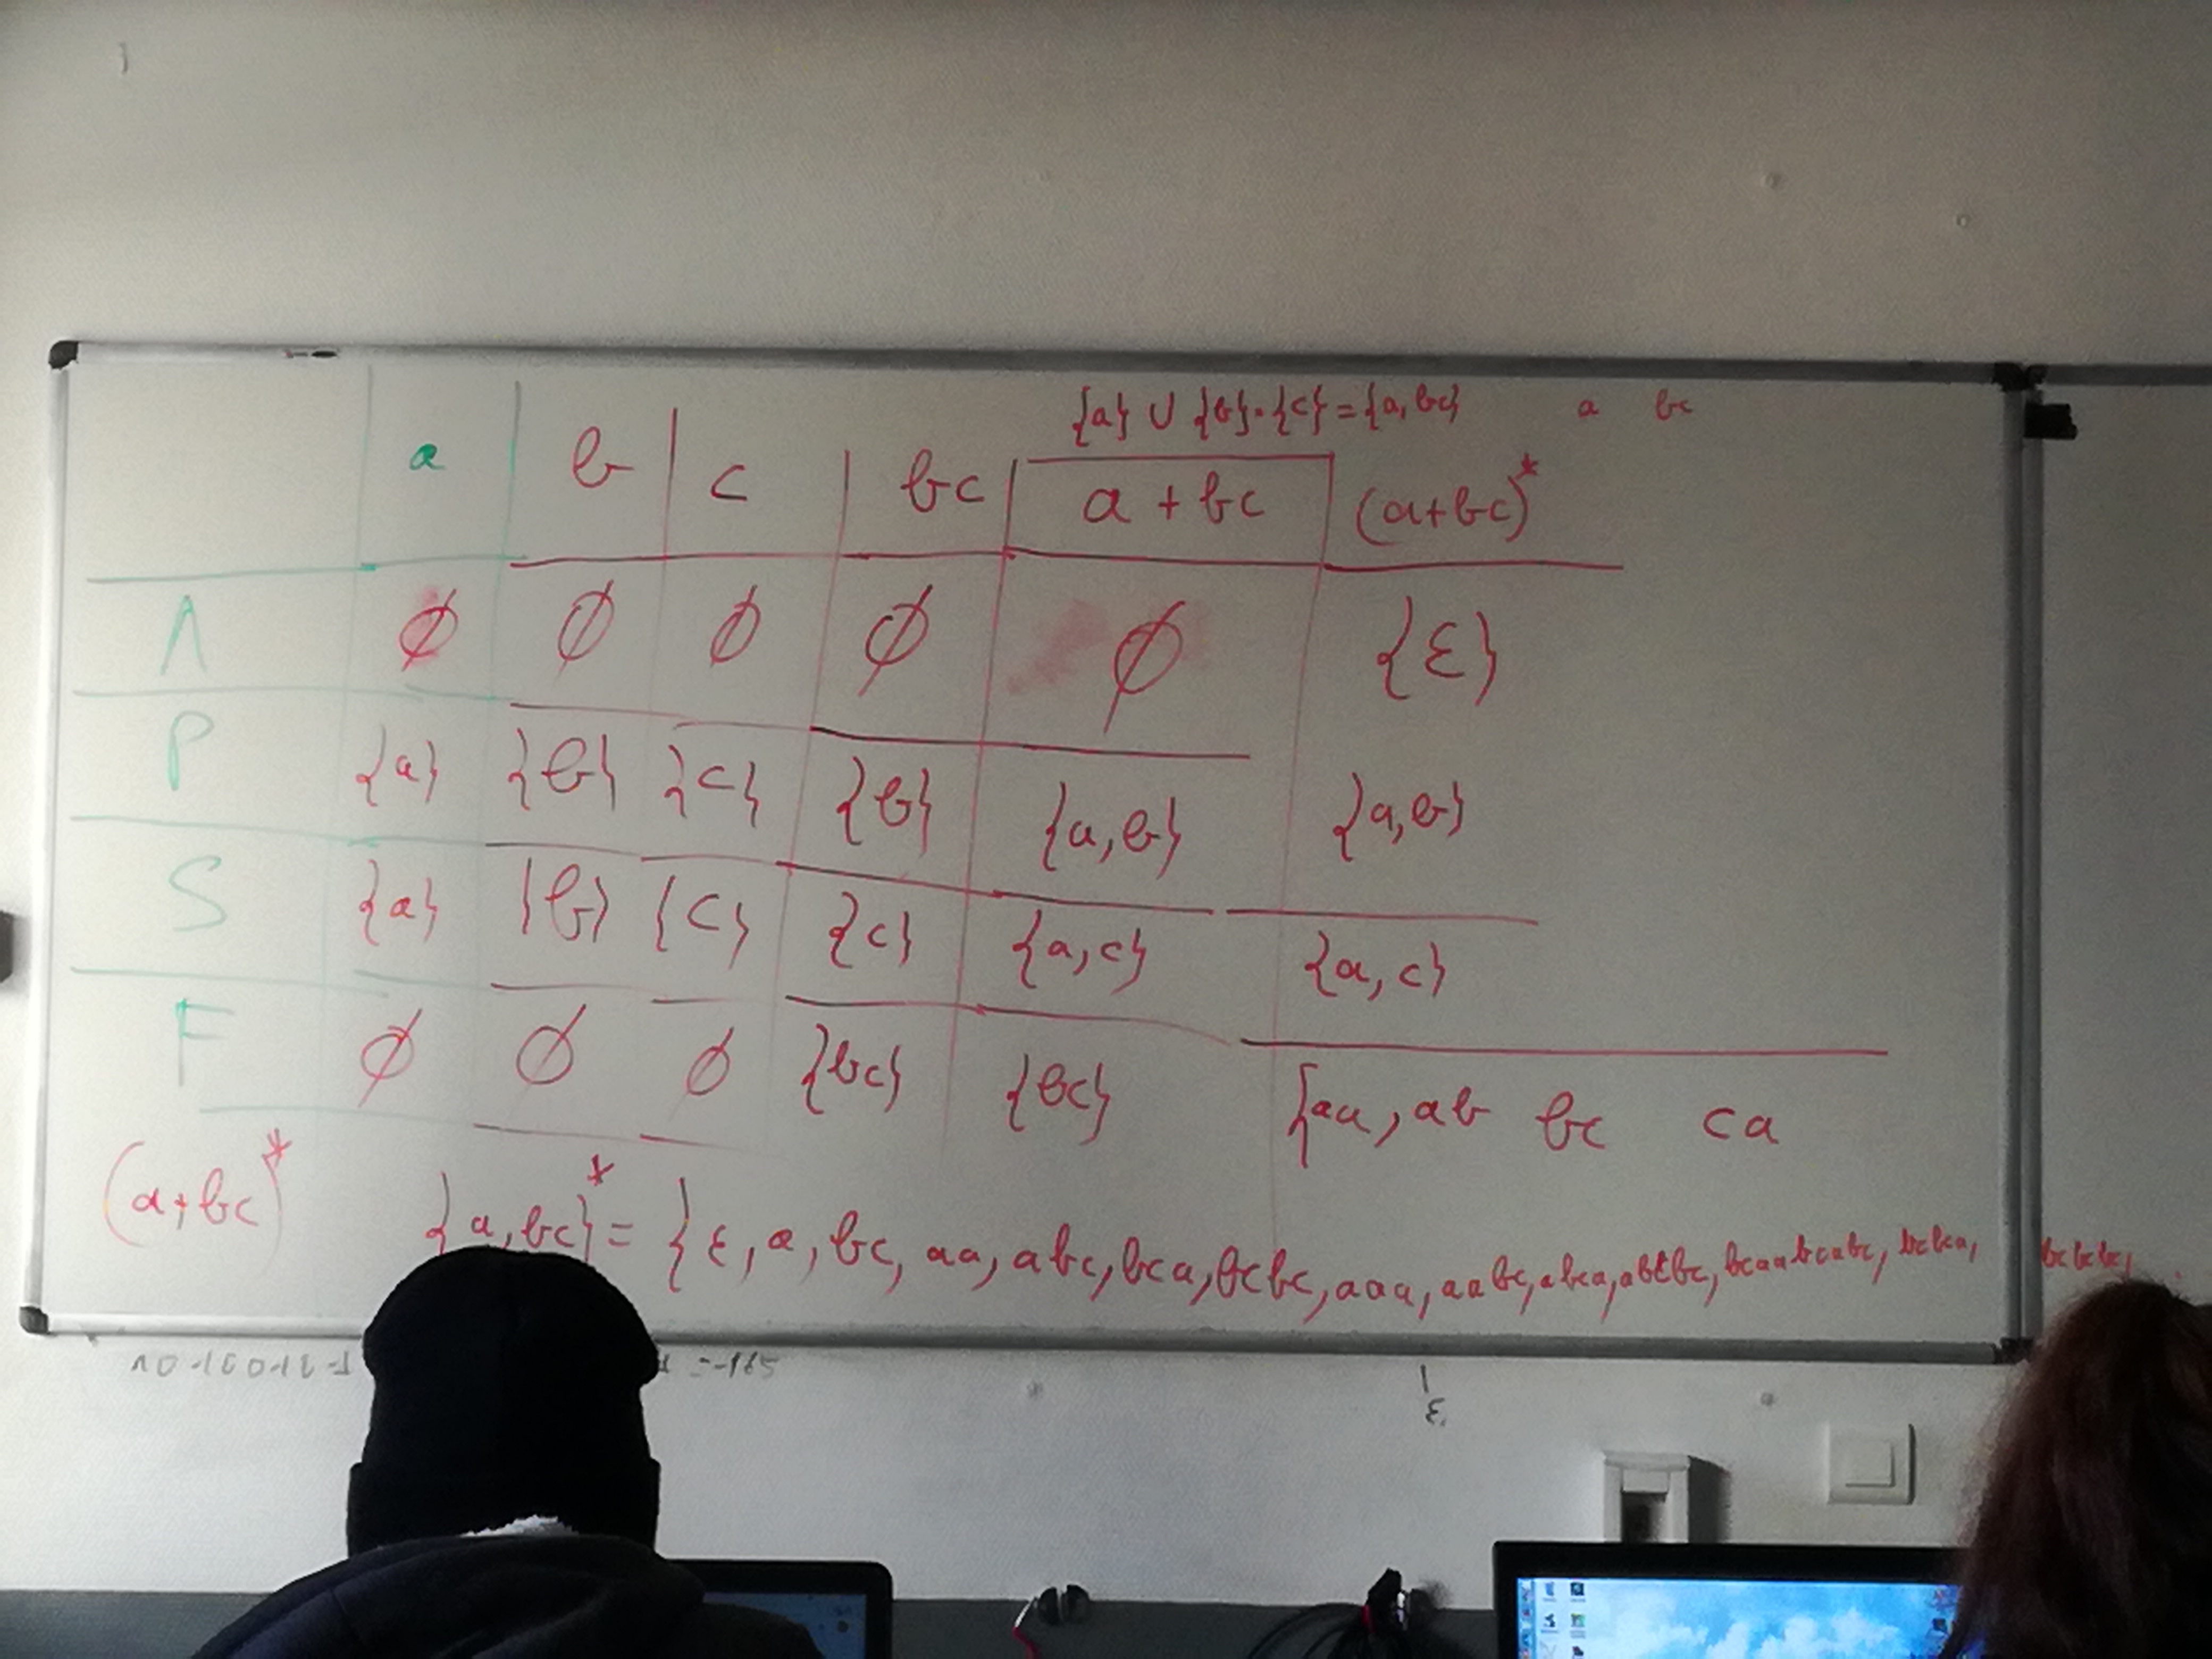 {a} ∪ {b}·{c} = {a, bc} a bc
a b c bc a + bc (a+bc)*
Λ ∅ ∅ ∅ ∅ ∅ {ε}
P {a} {b} {c} {b} {a, b} {a, b}
S {a} {b} {c} {c} {a, c} {a, c}
F ∅ ∅ ∅ {bc} {bc} {aa, ab bc ca
(a+bc)* {a, bc}* = {ε, a, bc, aa, abc, bca, bcbc, aaa, aabc, abca, abcbc, bcaabcabc, bcbca, bcbcbc,
ε